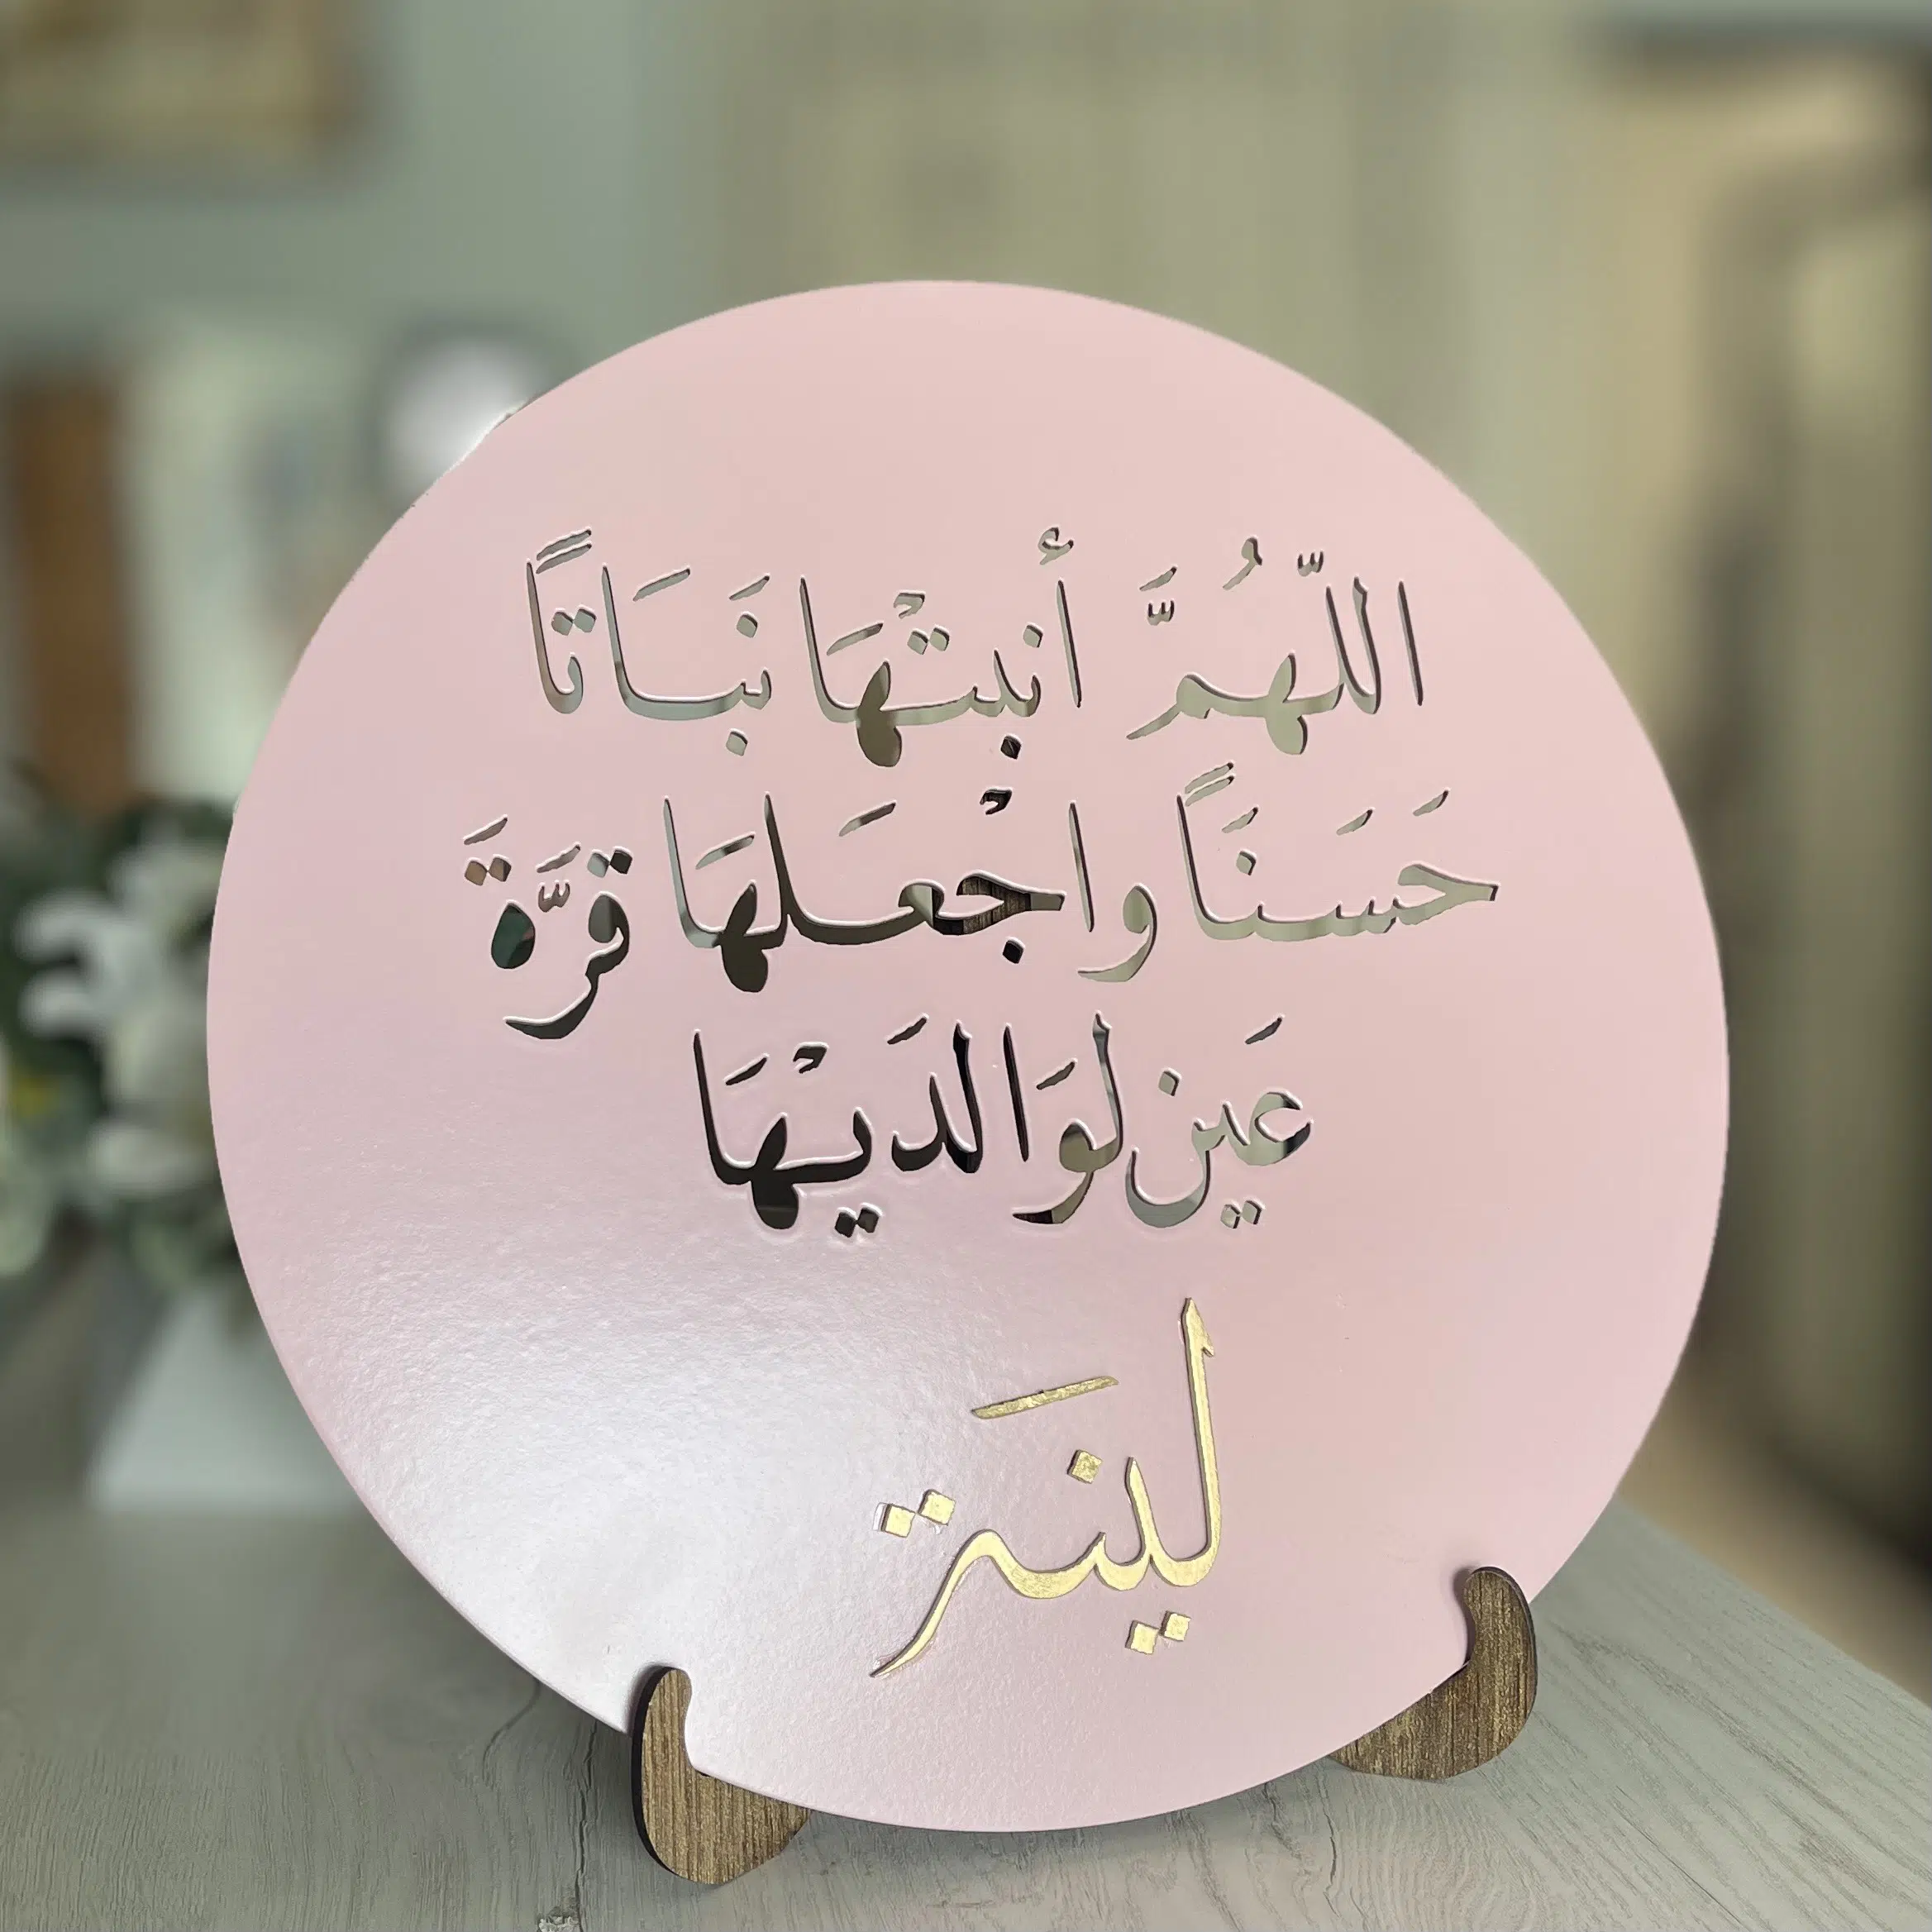 اللّهُمَّ أنبتْهَا نَبَاتًا
حَسَنَاً واجْعَلهَا قرَّةَ
عَين لوَالدَيْهَا
لينَة